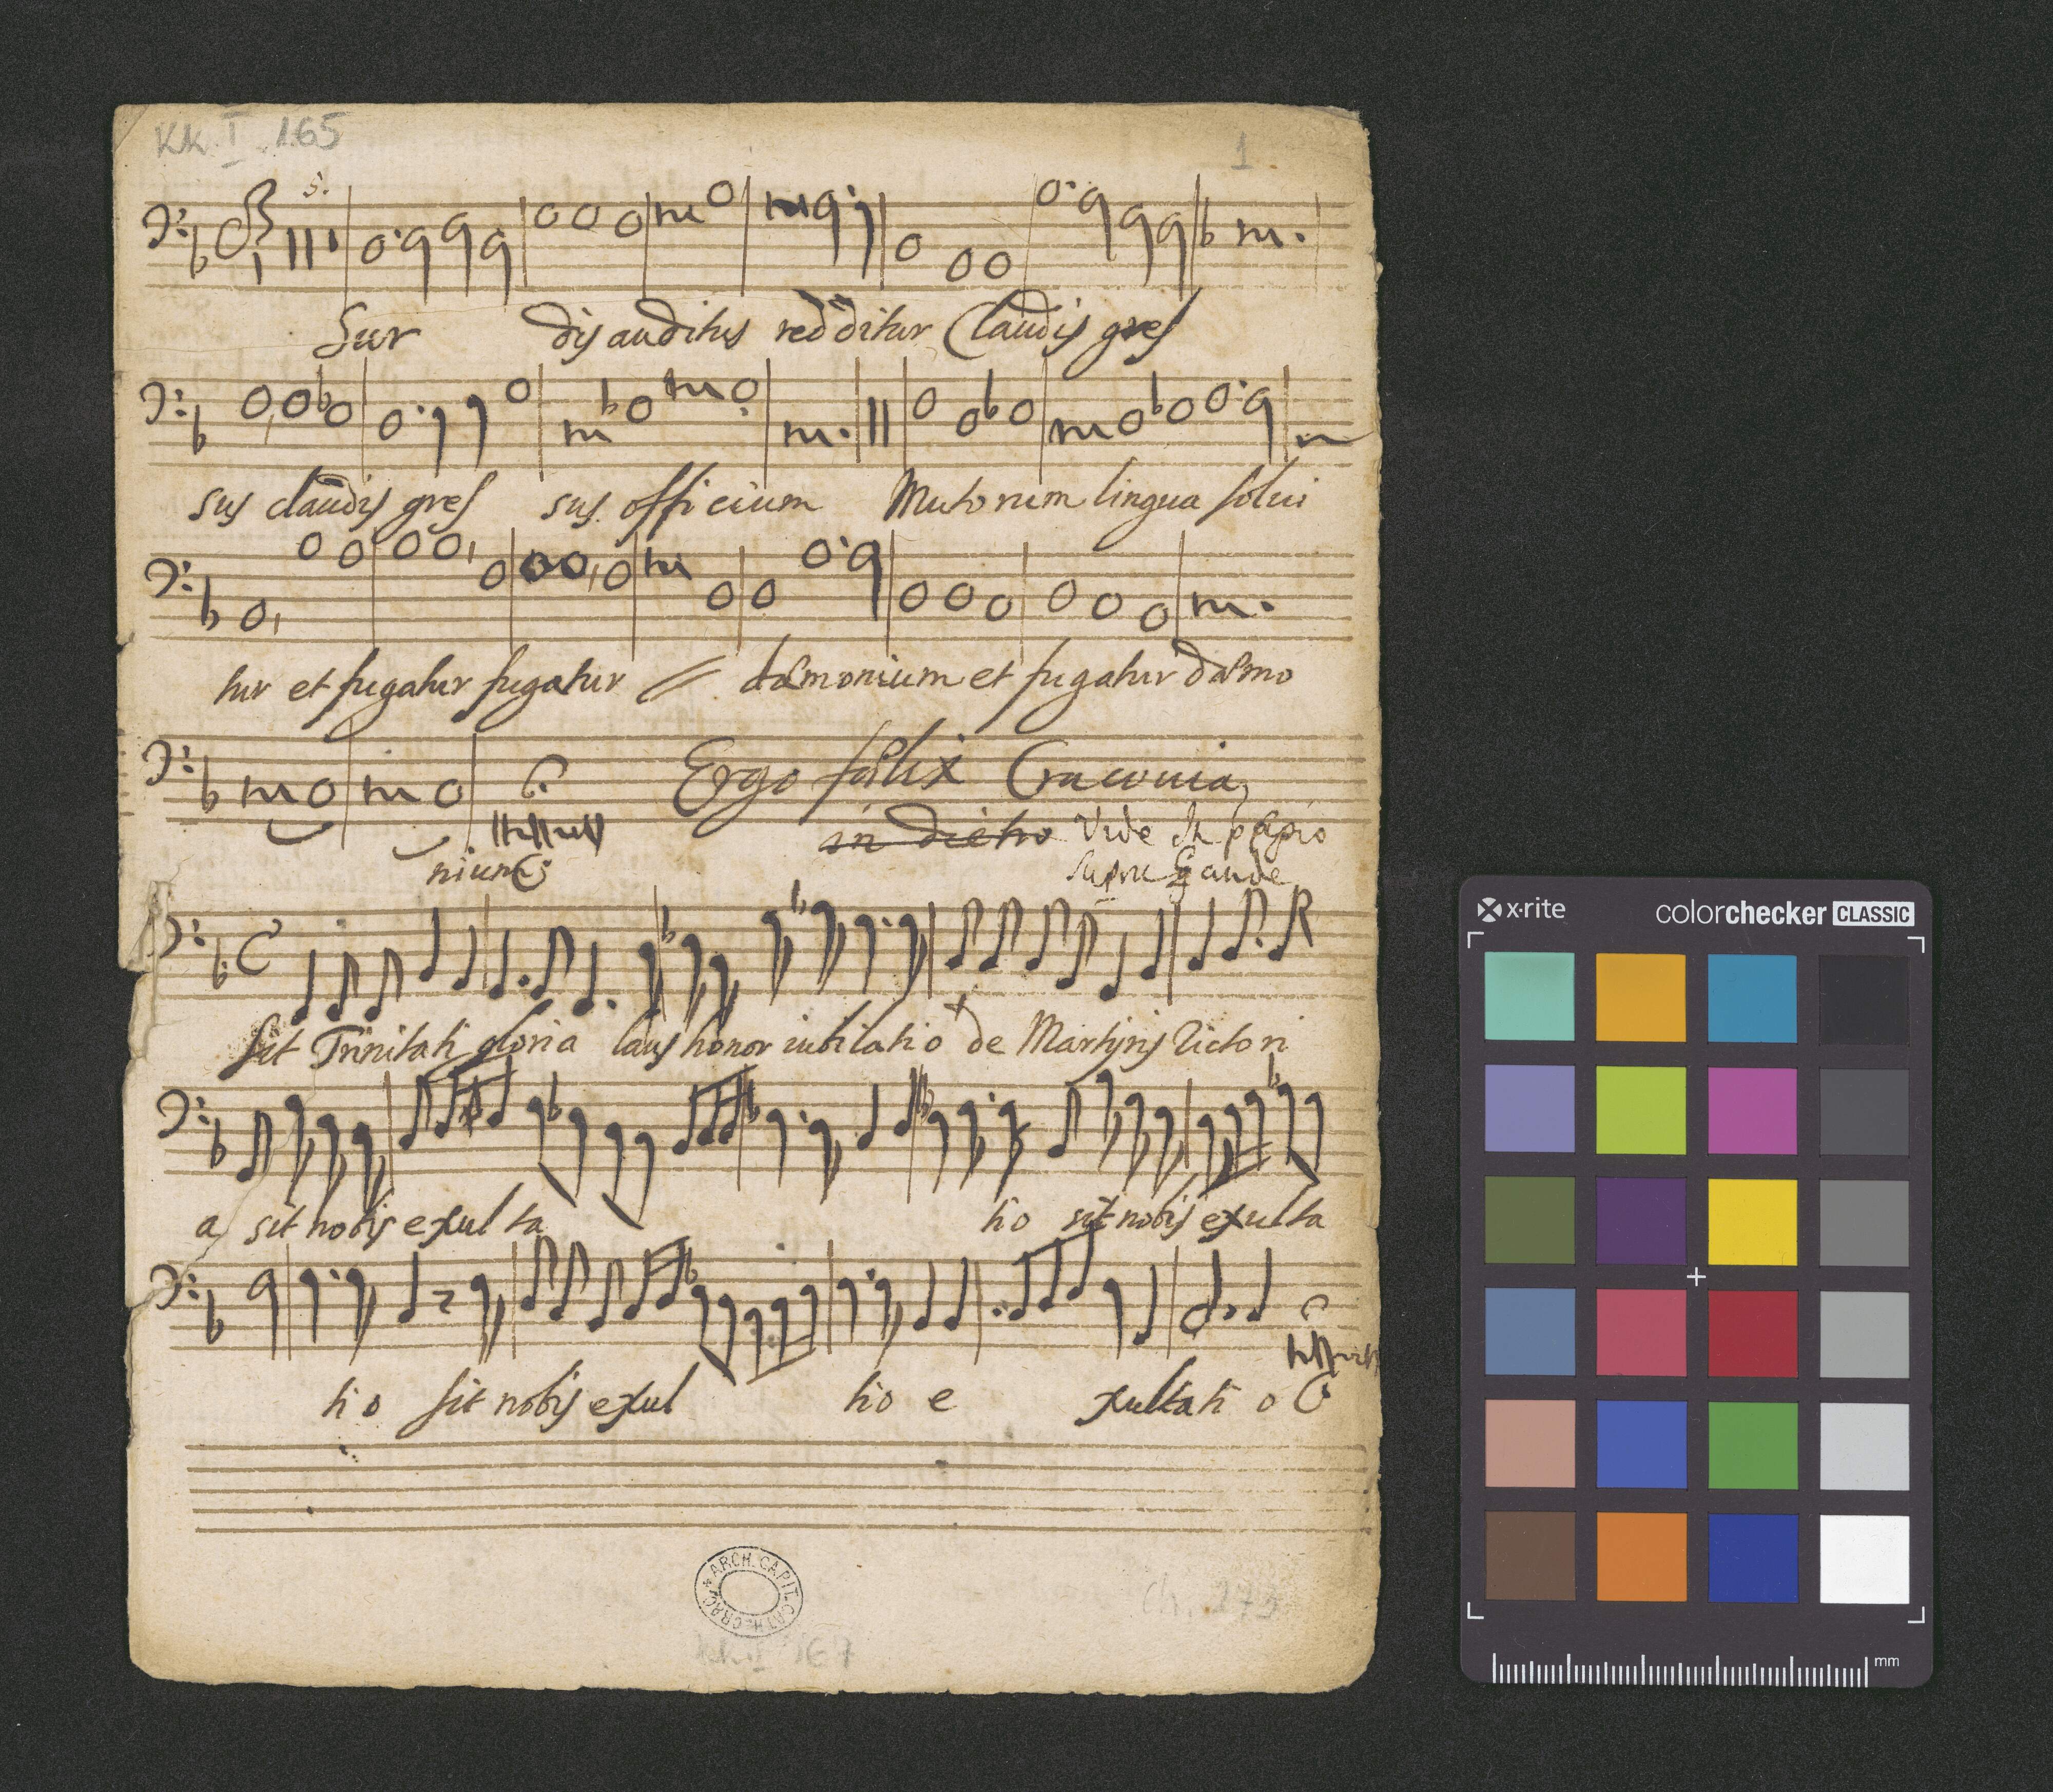 KK. I. 165
1
5.
Sur dis auditus redditur Claudis gres
sus claudis gres sus officium Mutorum lingua solui
tur et fugatur fugatur // dæmonium et fugatur dæmo
Ergo fælix Cracovia
in dietro Vide
nium supra Gaude
sit Trinitati gloria laus honor iubilatio de Martyris Victori
a sit nobis exulta tio sit nobis exulta
tio sit nobis exul tio e xultati o
ARCH. CAPIT. CATH. CRAC.
KK. I 167
x-rite
colorchecker CLASSIC
mm